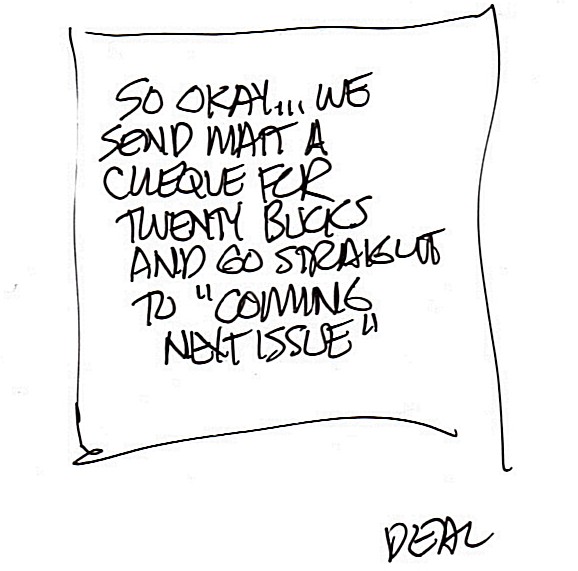 SO OKAY... WE
SEND MATT A
CHEQUE FOR
TWENTY BUCKS
AND GO STRAIGHT
TO "COMING
NEXT ISSUE"
DEAL